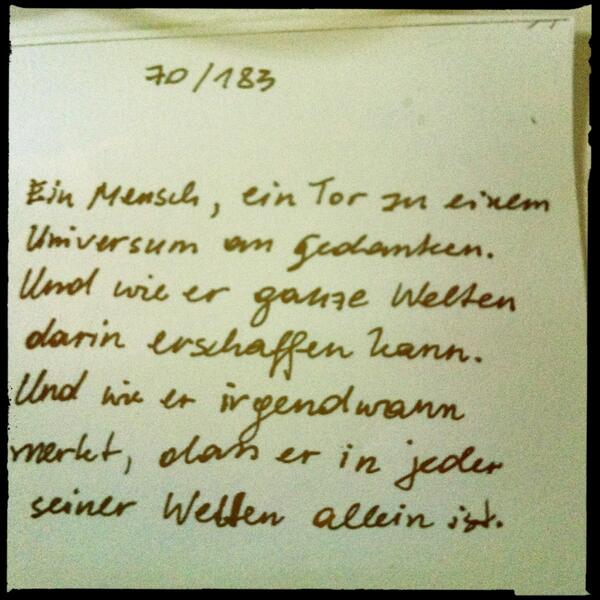 70/183
Ein Mensch, ein Tor zu einem
Universum an Gedanken.
Und wie er ganze Welten
darin erschaffen kann.
Und wie er irgendwann
merkt, dass er in jeder
seiner Welten allein ist.